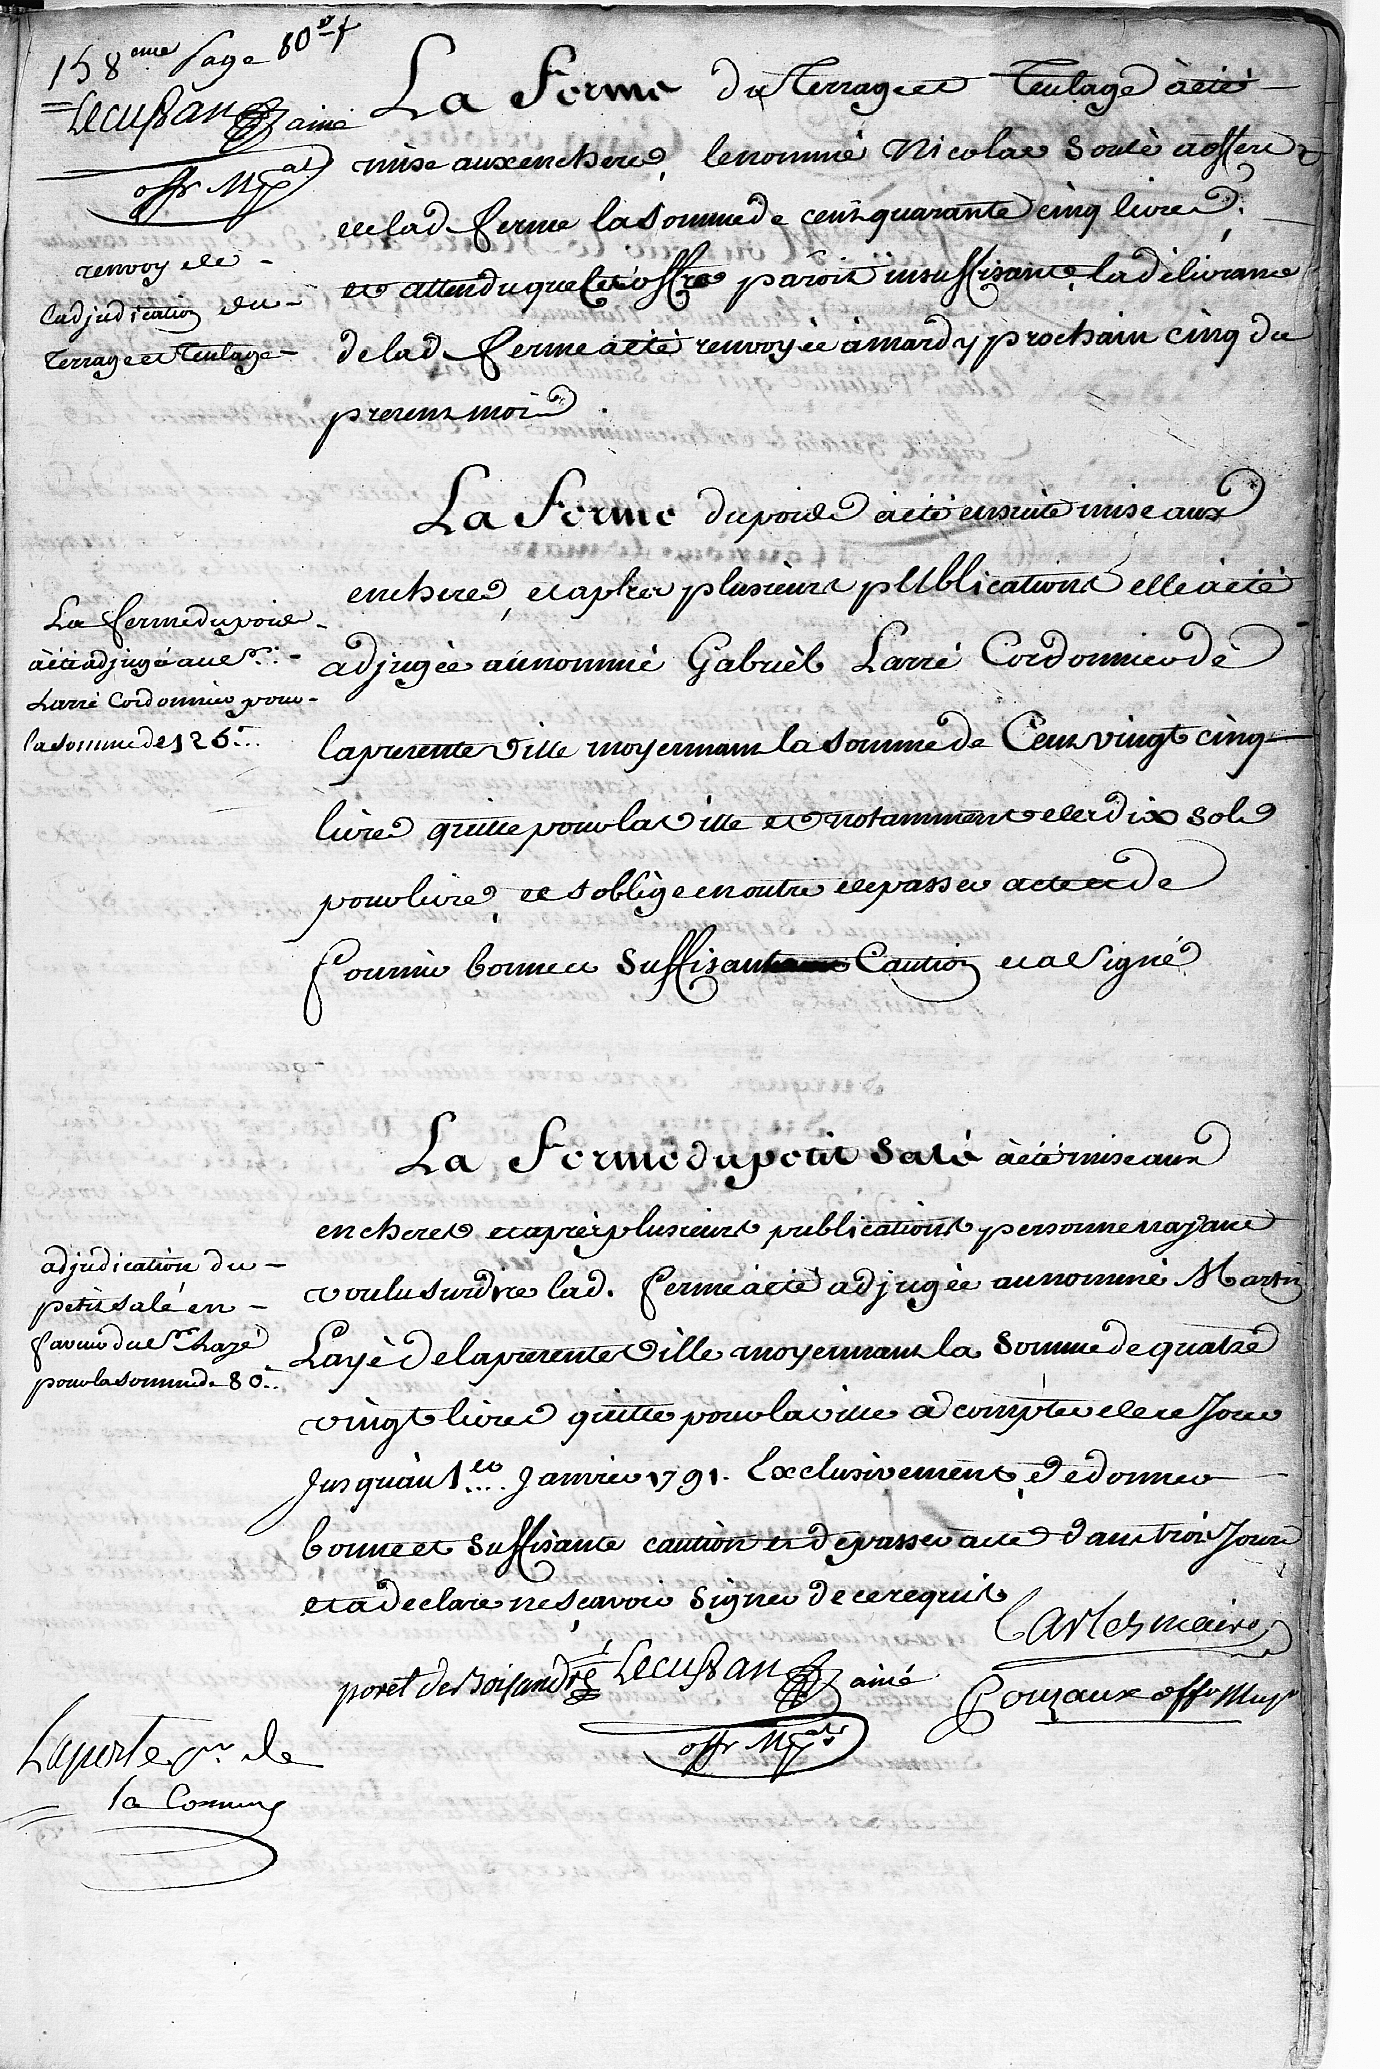 158eme page 80 f
Lecussan ainé
offr Mpal
La Ferme du Terrage et Teulage à été
mise aux enchere, le nommé Nicolas Soulé a offert
de lad ferme la somme de cent quarante cinq livres,
et attendu que cet offre paroit insuffisante, la délivrance
de lad ferme à été renvoyée à mardy prochain cinq du
present mois.
renvoy de
l'adjudication du
Terrage et Teulage
La Ferme du poids à été ensuite mise aux
encheres, et aprés plusieurs publications elle à été
adjugée au nommé Gabriël Larré Cordonnier dé
la presente ville moyennant la somme de Cent vingt cinq
livres quitte pour la ville et notamment des dix sols
pour livre, et s'oblige en outre de passer acte et de
fournir bonne et suffisante Caution et a Signé
La ferme du poids
à été adjugé au Sr
Larré Cordonnier pour
la somme de 125
La Ferme du petit Salé à été mise aux
encheres et aprés plusieurs publications personne n'ayant
voulu surdire lad. ferme à été adjugée au nommé Martin
Layé de la presente ville moyennant la Somme de quatre
vingt livres quitte pour la ville à compter de ce Jour
Jusqu'au 1er Janvier 1791. Exclusivement, de donner
bonne et suffisante caution et de passer acte dans trois Jours
et a declaré ne sçavoir Signer de ce requis
adjudication du
petit salé en
faveur du Sr Layé
pour la somme de 80
Cartes maire
poret de Boisandré Lecussan ainé
offr Mpal
Pouzaux offr Mup
Laporte pr de
la Commune